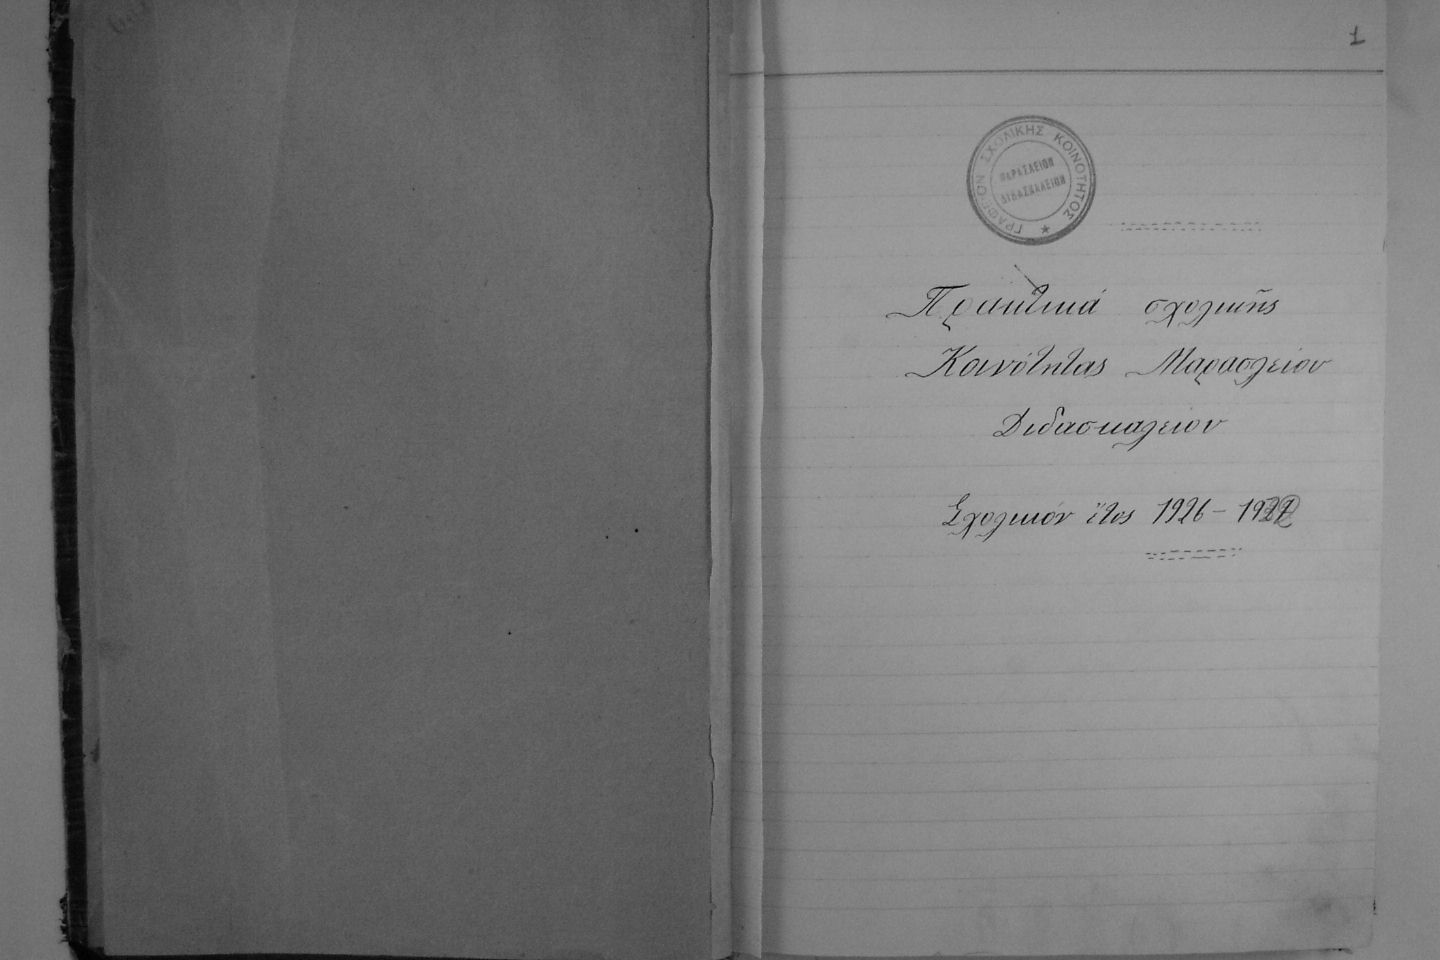 1
ΓΡΑΦΕΙΟΝ ΣΧΟΛΙΚΗΣ ΚΟΙΝΟΤΗΤΟΣ
ΜΑΡΑΣΛΕΙΟΝ
ΔΙΔΑΣΚΑΛΕΙΟΝ
Πρακτικά σχολικῆς
Κοινότητας Μαρασλείου
Διδασκαλείου
Σχολικόν ἔτος 1926 –